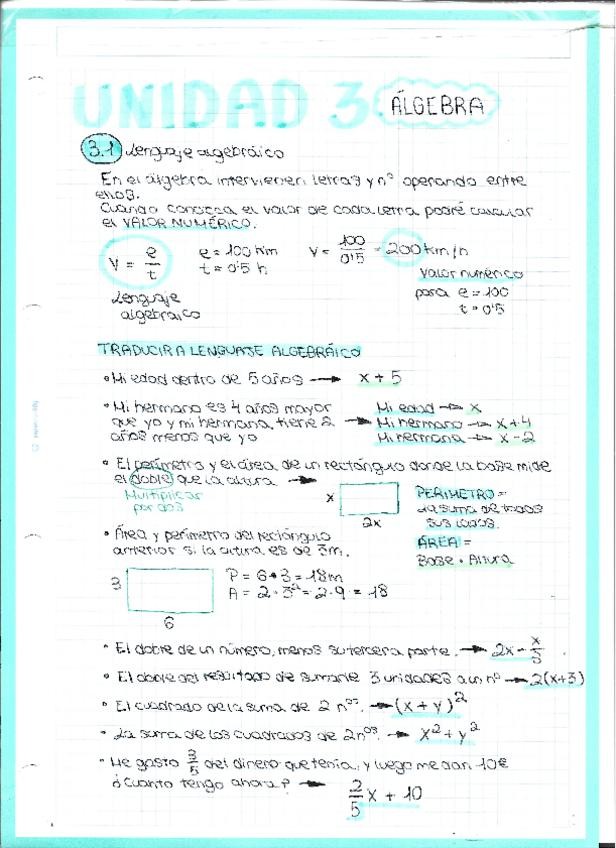 UNIDAD 3 ÁLGEBRA
3.1 Lenguaje algebráico
En el álgebra intervienen letras y nº operando entre
ellos.
Cuando conozca el valor de cada letra podré calcular
el VALOR NUMÉRICO.
V = e/t e = 100 km t = 0'5 h V = 100/0'5 = 200 km/h
Lenguaje
algebraico
valor numérico
para e = 100
t = 0'5
TRADUCIR A LENGUAJE ALGEBRÁICO
• Mi edad dentro de 5 años → x + 5
• Mi hermano es 4 años mayor Mi edad → x
que yo y mi hermana, tiene 2 → Mi hermano → x + 4
años menos que yo Mi hermana → x - 2
• El perímetro y el área de un rectángulo donde la base mide
el doble que la altura →
Multiplicar
por dos
x
2x
PERÍMETRO =
La suma de todos
sus lados.
ÁREA =
Base · Altura
• Área y perímetro del rectángulo
anterior si la altura es de 3m.
3
6
P = 6 · 3 = 18m
A = 2 · 3² = 2 · 9 = 18
• El doble de un número, menos su tercera parte. → 2x - x/3
• El doble del resultado de sumarle 3 unidades a un nº → 2(x+3)
• El cuadrado de la suma de 2 nºs. → (x + y)²
• La suma de los cuadrados de 2 nºs. → x² + y²
• Me gasto 3/5 del dinero que tenía, y luego me dan 10€
¿cuanto tengo ahora? → 2/5 x + 10